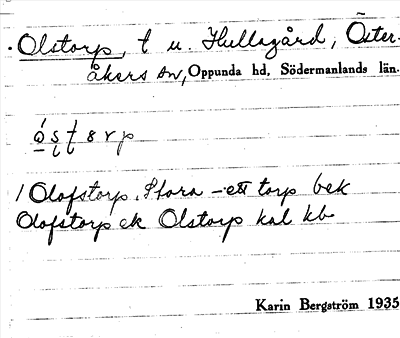 Olstorp, t u. Hullagård, Öster-
åkers sn, Oppunda hd, Södermanlands län.
ó s t ɘ r p
/ Olofstorp, Stora – ett torp bek
Olofstorp ek Olstorp kal kb
Karin Bergström 1935